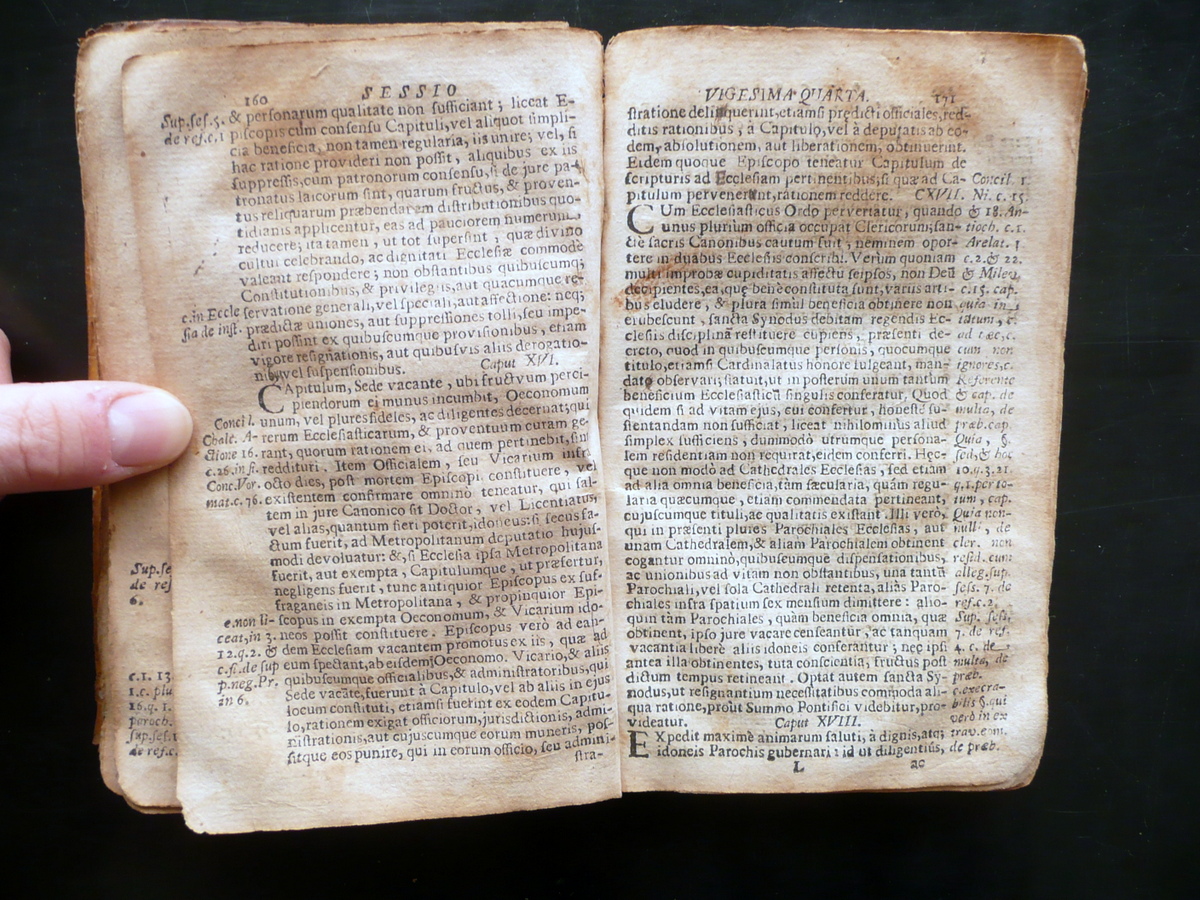 160
SESSIO
Sup.ses.5.
de ref.c.1
& personarum qualitate non sufficiant; liceat E-
piscopis cum consensu Capituli, vel aliquot simpli-
cia beneficia, non tamen regularia, iis unire; vel, si
hac ratione provideri non possit, aliquibus ex iis
suppressis, cum patronorum consensu, si de jure pa-
tronatus laicorum sint, quarum fructus, & proven-
tus reliquarum præbendarum distributionibus quo-
tidianis applicentur, eas ad pauciorem numerum
reducere; ita tamen, ut tot supersint, quæ divino
cultui celebrando, ac dignitati Ecclesiæ commodè
valeant respondere; non obstantibus quibuscumq;
Constitutionibus, & privilegiis, aut quacumque re-
servatione generali, vel speciali, aut affectione: neq;
prædictæ uniones, aut suppressiones tolli, seu impe-
diri possint ex quibuscumque provisionibus, etiam
vigore resignationis, aut quibusvis aliis derogatio-
nibus vel suspensionibus. Caput XVI.
c.in Eccle
sia de inst.
CApitulum, Sede vacante, ubi fructvum perci-
piendorum ei munus incumbit, Oeconomum
unum, vel plures fideles, ac diligentes decernat; qui
rerum Ecclesiasticarum, & proventuum curam ge-
rant, quorum rationem ei, ad quem pertinebit, sint
reddituri. Item Officialem, seu Vicarium infra
octo dies, post mortem Episcopi constituere, vel
existentem confirmare omninò teneatur, qui sal-
tem in jure Canonico sit Doctor, vel Licentiatus,
vel alias, quantum fieri poterit, idoneus: si secus fa-
ctum fuerit, ad Metropolitanum deputatio hujus-
modi devoluatur: &, si Ecclesia ipsa Metropolitana
fuerit, aut exempta, Capitulumque, ut præfertur,
negligens fuerit, tunc antiquior Episcopus ex suf-
fraganeis in Metropolitana, & propinquior Epi-
scopus in exempta Oeconomum, & Vicarium ido-
neos possit constituere. Episcopus verò ad ean-
dem Ecclesiam vacantem promotus ex iis, quæ ad
eum spectant, ab eisdem Oeconomo. Vicario, & aliis
quibuscumque officialibus, & administratoribus, qui
Sede vacãte, fuerunt à Capitulo, vel ab aliis in ejus
locum constituti, etiamsi fuerint ex eodem Capitu-
lo, rationem exigat officiorum, jurisdictionis, admi-
nistrationis, aut cujuscumque eorum muneris, pos-
sitque eos punire, qui in eorum officio, seu admini-
stra-
Concil.
Chalc. A-
ctione 16.
c.26.in fi.
Conc.Vor.
mat.c. 76.
e.non li-
ceat, in 3.
12.q.2. &
c.si.de sup
p.neg.Pr.
in 6.
Sup.se
de ref
6.
c.1. 13
1.c. plu
16.q. 1.
paroch.
sup.ses.
de ref.c.
VIGESIMA QUARTA.
stratione deliquerint, etiamsi prędicti officiales, red-
ditis rationibus, à Capitulo, vel à deputatis ab eo-
dem, absolutionem, aut liberationem, obtinuerint.
Eidem quoque Episcopo teneatur Capitulum de
scripturis ad Ecclesiam pertinentibus, si quæ ad Ca-
pitulum pervenerunt, rationem reddere. CXVII.
CUm Ecclesiasticus Ordo pervertatur, quando
unus plurium officia occupat Clericorum; san-
ctè sacris Canonibus cautum fuit, neminem opor-
tere in duabus Ecclesiis conscribi. Verùm quoniam
multi improbæ cupiditatis affectu seipsos, non Deũ
decipientes, ea, quę benè constituta sunt, variis arti-
bus eludere, & plura simul beneficia obtinere non
erubescunt, sancta Synodus debitam regendis Ec-
clesiis disciplinã restituere cupiens, præsenti de-
creto, quod in quibuscumque personis, quocumque
titulo, etiamsi Cardinalatus honore fulgeant, man-
dat observari; statuit, ut in posterum unum tantum
beneficium Ecclesiasticũ singulis conferatur. Quod
quidem si ad vitam ejus, cui confertur, honestè su-
stentandam non sufficiat, liceat nihilominus aliud
simplex sufficiens, dummodò utrumque persona-
lem residentiam non requirat, eidem conferri. Hęc-
que non modò ad Cathedrales Ecclesias, sed etiam
ad alia omnia beneficia, tàm sæcularia, quàm regu-
laria quæcumque, etiam commendata pertineant,
cujuscumque tituli, ac qualitatis existant. Illi verò,
qui in præsenti plures Parochiales Ecclesias, aut
unam Cathedralem, & aliam Parochialem obtinent
cogantur omninò, quibuscumque dispensationibus,
ac unionibus ad vitam non obstantibus, una tantũ
Parochiali, vel sola Cathedrali retenta, aliàs Paro-
chiales infra spatium sex mensium dimittere: alio-
quin tàm Parochiales, quàm beneficia omnia, quæ
obtinent, ipso jure vacare censeantur, ac tanquam
vacantia liberè aliis idoneis conferantur; nec ipsi
antea illa obtinentes, tuta conscientia, fructus post
dictum tempus retineant. Optat autem sancta Sy-
nodus, ut resignantium necessitatibus commoda ali-
qua ratione, prout Summo Pontifici videbitur, pro-
videatur. Caput XVIII.
EXpedit maximè animarum saluti, à dignis, atq;
idoneis Parochis gubernari: id ut diligentiùs,
L
ac
Concil. 1.
Ni. c. 15.
& 18. An-
tioch. c.1.
Arelat. 1.
c.2. & 22.
& Milev.
c.15. cap.
quia in
cum non
ignores, c.
Referente
& cap. de
multa, de
præb. cap.
Quia, §.
sed, & hoc
10.q.3. 21.
q.1. per to-
tum, cap.
Quia non-
nulli, de
cler. non
resid. cum
alleg. sup.
sess. 7. de
ref.c.2.
Sup. sess.
7. de ref.
4. c. de
multa, de
præb.
c.execra-
bilis §. qui
verò in ex
trav. com.
de præb.